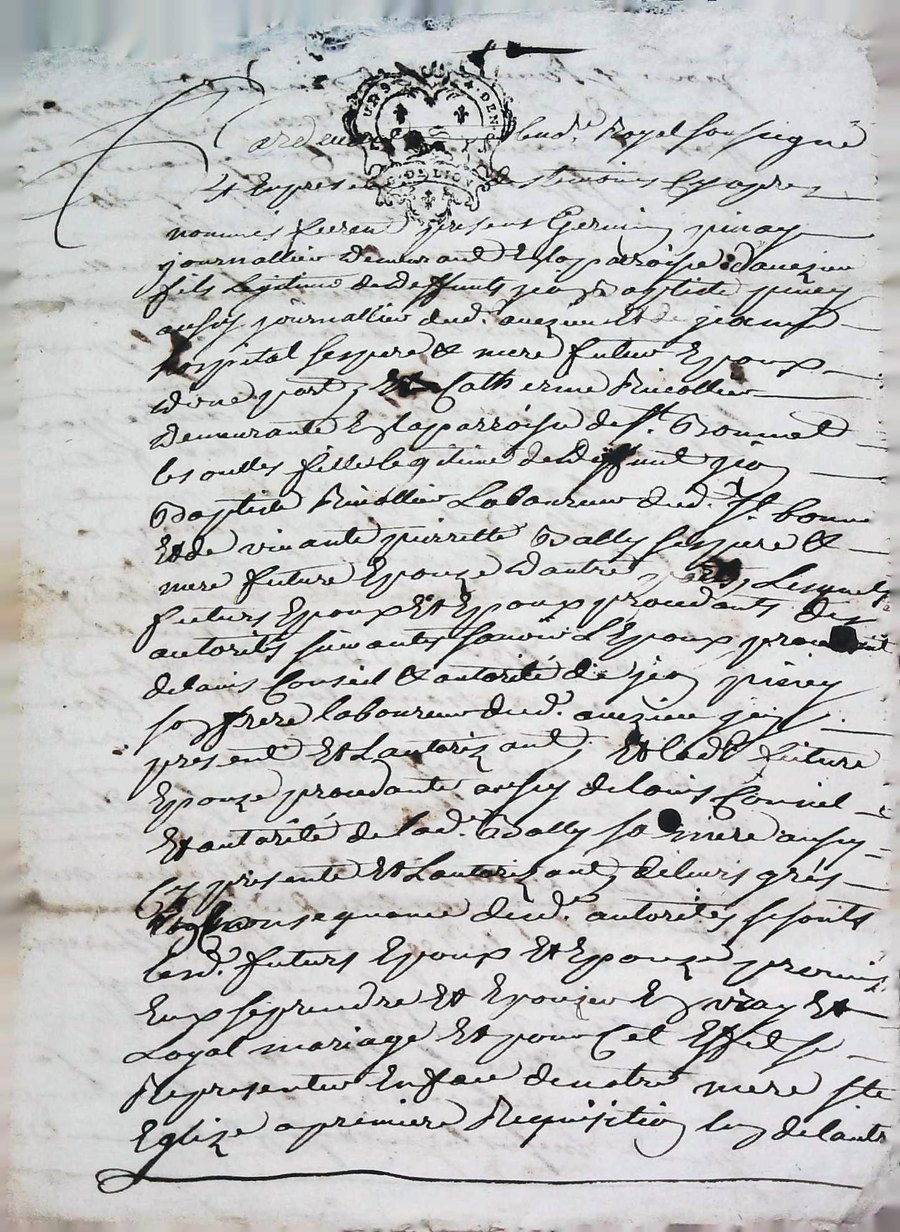 Pardevant le Nore. Royal soussigné
Et En presence des temoins Cy apres
nommés furent presens Germain piney
journallier demeurant En la parroisse d'aveizieu
fils legitime de deffunts jean Baptiste piney
aussy journallier dud. aveizieu et de jeanne
hospital ses pere & mere futur Epoux
d'une part, Et Catherine Rivollier
Demeurante En la parroisse de St. Bonnet
les oulles fille legitime de deffunt jean
Baptiste Rivollier Laboureur dud. St. bonnet
Et de vivante pierrette Bally ses pere &
mere future Epouze d'autre part, Lesquels
futurs Epoux Et Epouze procedants des
autorités suivantes sçavoir L'Epoux procedant
de lavis Conseil & autorité de jean piney
son frere laboureur dud. aveizieu icy
present Et Lautorizant, Et lade. future
Epouze procedante aussy de lavis Conseil
Et autorité de lad. Bally sa mere aussy
Cy presente Et Lautorizant, de leurs grés
En Consequance desd. autorités se sont
lesd. futurs Epoux Et Epouze promis
Eux se prendre Et Epouser En vray Et
Loyal mariage Et pour Cet Effet se
Representer En face de notre mere ste
Eglize a premiere Requisition lun de lautre